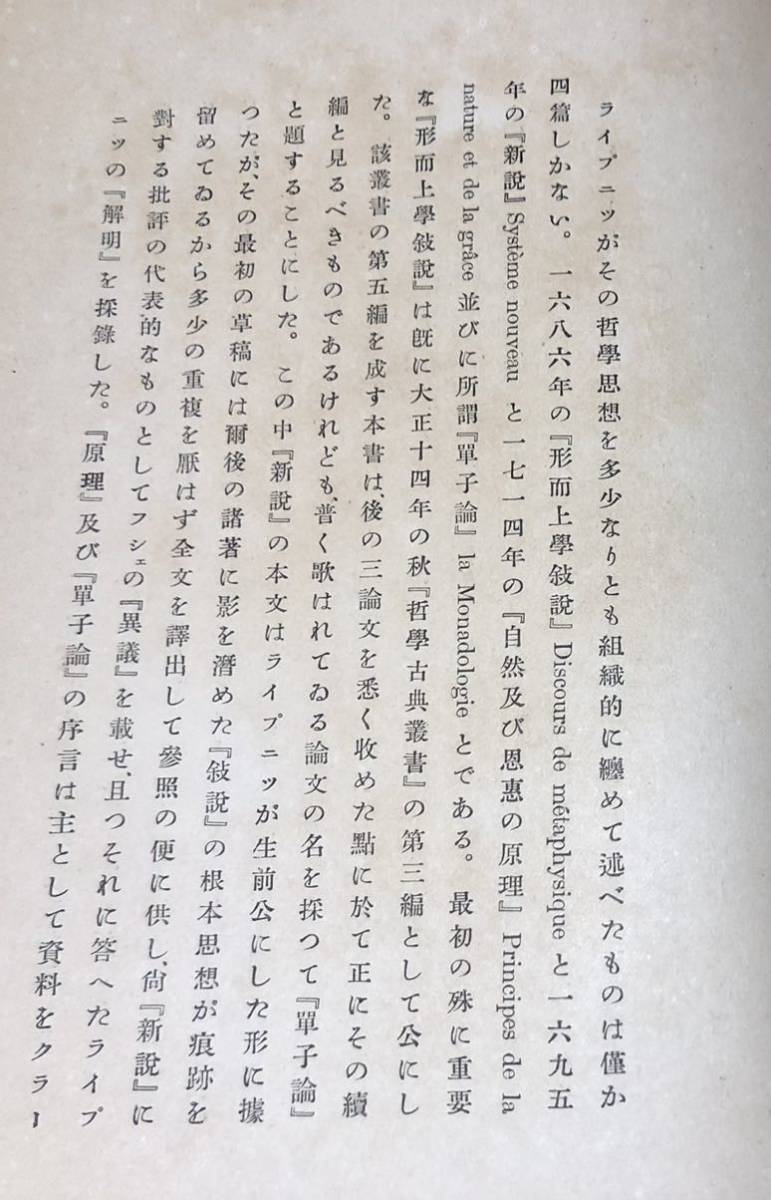 ライプニッツがその哲學思想を多少なりとも組織的に纏めて述べたものは僅か
四篇しかない。一六八六年の『形而上學敍說』Discours de métaphysique と一六九五
年の『新說』Système nouveau と一七一四年の『自然及び恩惠の原理』Principes de la
nature et de la grâce 並びに所謂『單子論』la Monadologie とである。最初の殊に重要
な『形而上學敍說』は旣に大正十四年の秋『哲學古典叢書』の第三編として公にし
た。該叢書の第五編を成す本書は、後の三論文を悉く收めた點に於て正にその續
編と見るべきものであるけれども、普く歌はれてゐる論文の名を採つて『單子論』
と題することにした。この中『新說』の本文はライプニッツが生前公にした形に據
つたが、その最初の草稿には爾後の諸著に影を潛めた『敍說』の根本思想が痕跡を
留めてゐるから多少の重複を厭はず全文を譯出して參照の便に供し、尙『新說』に
對する批評の代表的なものとしてフシェの『異議』を載せ、且つそれに答へたライプ
ニッツの『解明』を採錄した。『原理』及び『單子論』の序言は主として資料をクラー